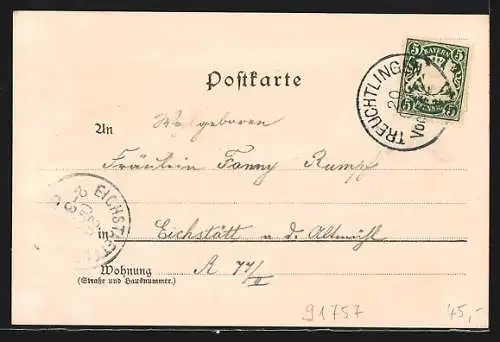 5 BAYERN 5
5 PFENNIG 5
TREUCHTLING
20
Vor
Postkarte
An Wolgeboren
Fräulein Fanny Rumpf
EICHSTÄTT
in Eichstätt a. d. Altmühl
Wohnung A 77/II
(Straße und Hausnummer.)
91757 45,-